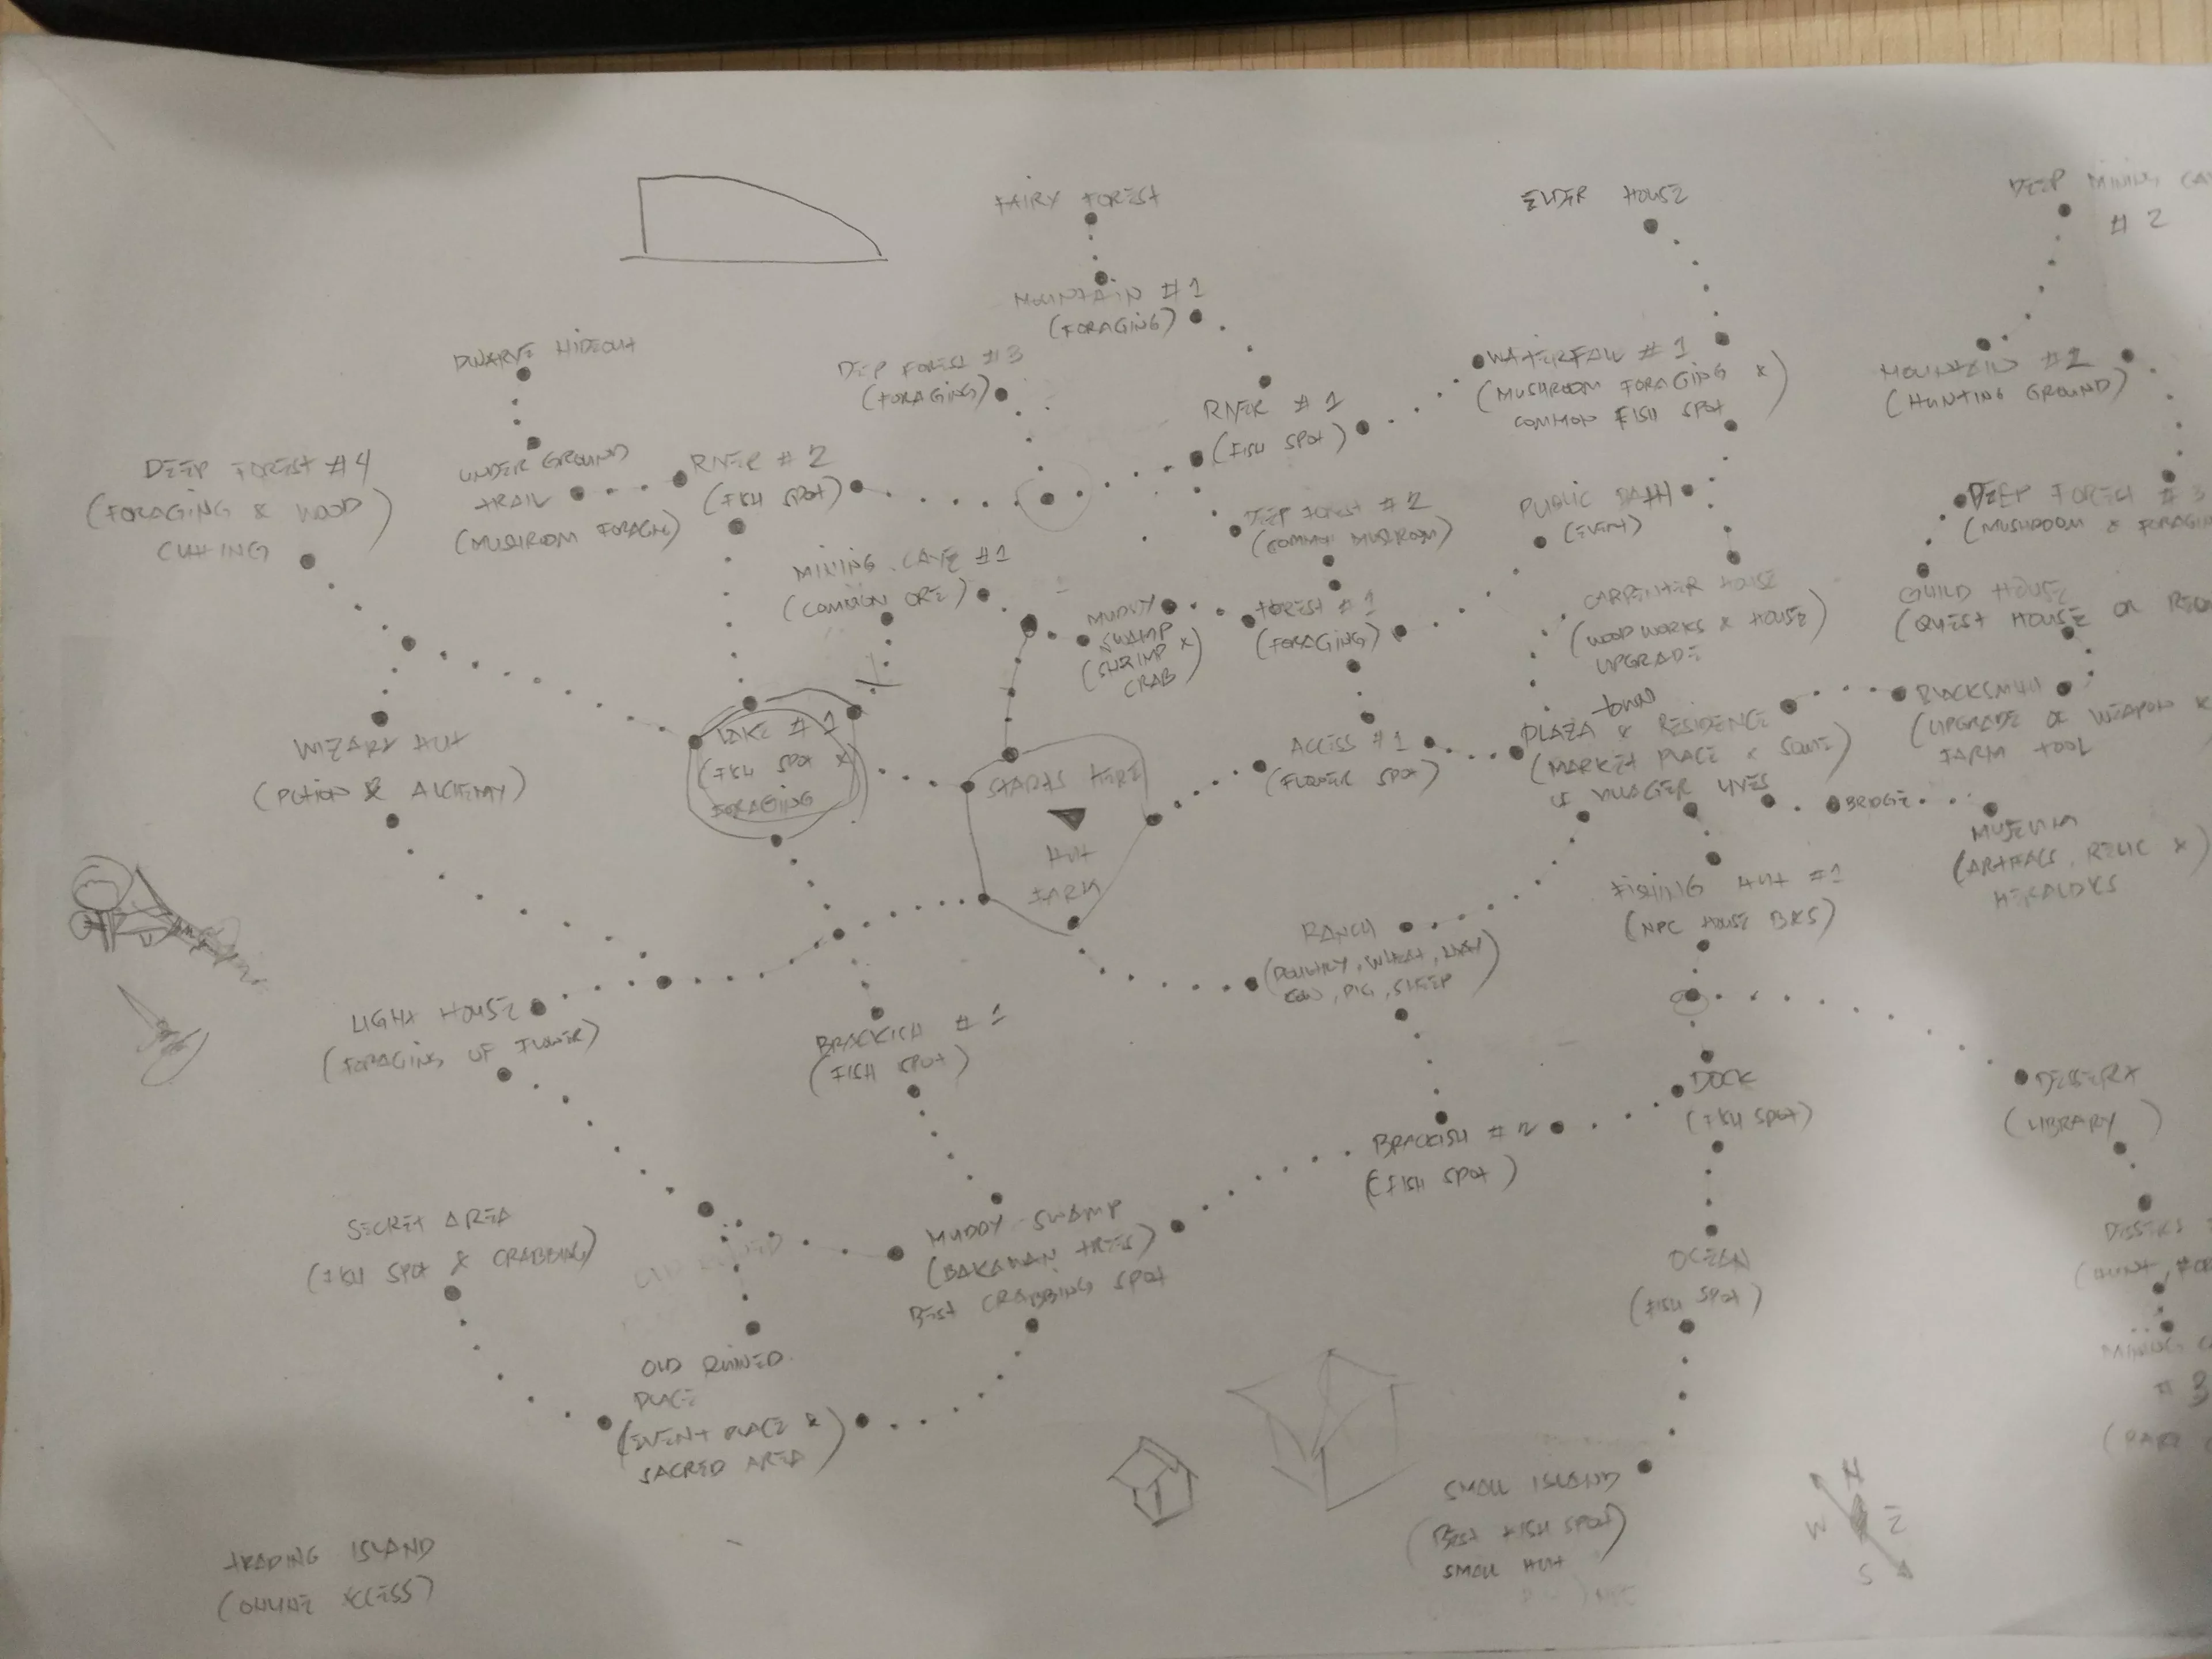 FAIRY FOREST
ELDER HOUSE
DEEP MINING CA
# 2
MOUNTAIN #1
(FORAGING)
DWARVE HIDEOUT
DEEP FOREST #3
(FORAGING)
WATERFALL #1
(MUSHROOM FORAGING &
COMMON FISH SPOT)
MOUNTAIN #2
(HUNTING GROUND)
RIVER #1
(FISH SPOT)
DEEP FOREST #4
(FORAGING & WOOD
CUTTING)
UNDER GROUND
TRAIL
(MUSHROOM FORAGING)
RIVER #2
(FISH SPOT)
DEEP FOREST #2
(COMMON MUSHROOM)
PUBLIC BATH
(EVENT)
DEEP FOREST #3
(MUSHROOM & FORAGIN
MINING CAVE #1
(COMMON ORE)
MUDDY
SWAMP
(SHRIMP &
CRAB)
FOREST #1
(FORAGING)
CARPENTER HOUSE
(WOOD WORKS & HOUSE
UPGRADE)
GUILD HOUSE
(QUEST HOUSE OR REQU
WIZARD HUT
(POTION & ALCHEMY)
LAKE #1
(FISH SPOT &
FORAGING)
STARTS HERE
HUT
FARM
ACCESS #1
(FLOWER SPOT)
TOWN
PLAZA & RESIDENCE
(MARKET PLACE & SOME)
OF VILLAGER LIVES
BLACKSMITH
(UPGRADE OF WEAPON &
FARM TOOL
BRIDGE
MUSEUM
(ARTIFACTS, RELIC &)
FISHING HUT #1
(NPC HOUSE BKS)
RANCH
(POULTRY, WHEAT, HAY
COW, PIG, SHEEP)
LIGHT HOUSE
(FORAGING OF FLOWER)
BRACKISH #1
(FISH SPOT)
DOCK
(FISH SPOT)
DESSERT
(LIBRARY)
BRACKISH #2
(FISH SPOT)
SECRET AREA
(FISH SPOT & CRABBING)
MUDDY SWAMP
(BAKAWAN TREES)
BEST CRABBING SPOT
OCEAN
(FISH SPOT)
(HUNT, FOR
MINING C
# 3
(RARE
OLD RUINED
PLACE
(EVENT PLACE &
SACRED AREA)
SMALL ISLAND
(BEST FISH SPOT)
SMALL HUT
N
W E
S
TRADING ISLAND
(ONLINE ACCESS)